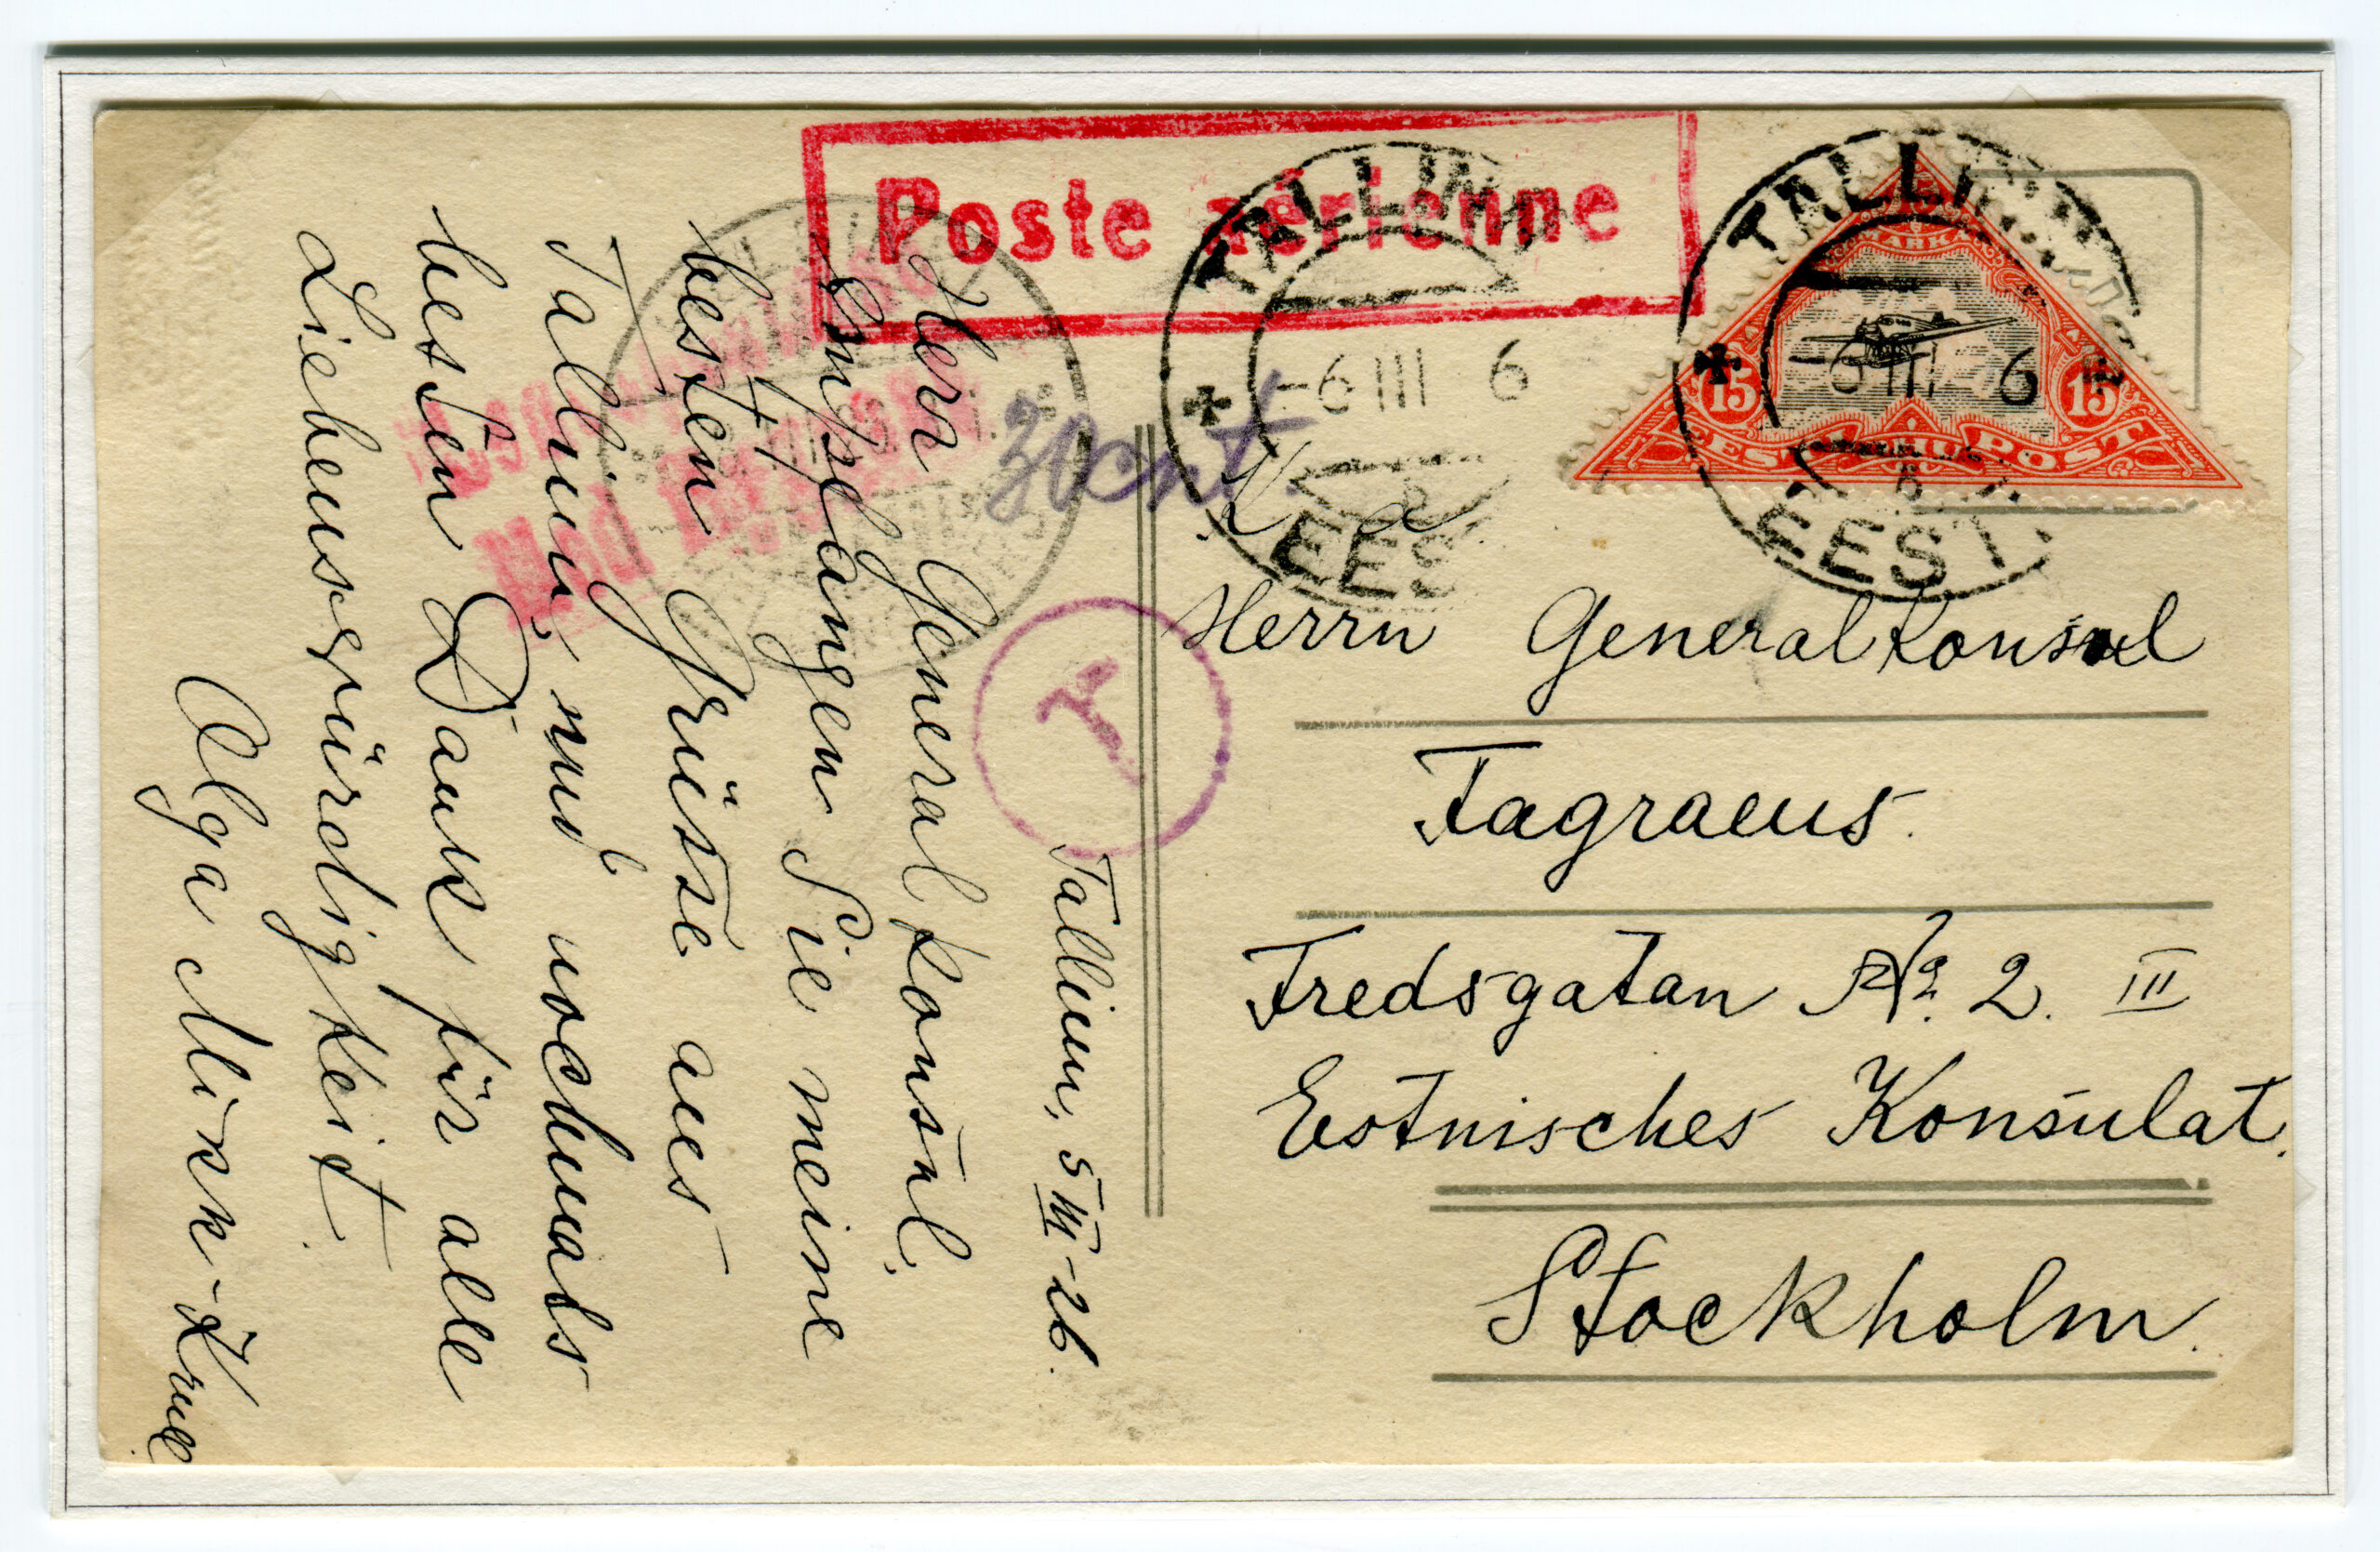 Poste aérienne
TALLINN
-6 III 6
EEST
TALLINN
-6 III 6
EESTI
MARKA
15 15
EESTI POST
Med
30cnt.
T
Herrn Generalkonsul
Fagraeus.
Fredsgatan No. 2. III
Estnisches Konsulat.
Stockholm.
Tallinn, 5 III-26.
Herr Generalkonsul,
Empfangen Sie meine
besten Grüsse aus
Tallinn, und nochmals
besten Dank für alle
Liebenswürdigkeit.
Olga